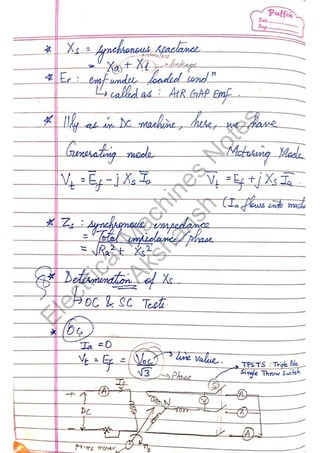 Puffin
Date
Page
* Xs = synchronous reactance
= Xa + Xl
→ leakage
* Er : emf under loaded condⁿ
↳ called as : AIR GAP Emf.
* Illy as in DC machine, here, we have
Generating mode    Motoring Mode
Vt = Ef - j Xs Ia    Vt = Ef + j Xs Ia
(Ia flows into mach
* Zs : synchronous impedance
= Total impedance/phase
= √Ra² + Xs²
⑧ Determination of Xs.
↳ OC & SC Tests
* OC
Ia = 0
Vt = Ef = Voc/√3 → line value.
→ Phase
TPSTS : Triple Pole
Single Throw Switch
If
A
DC
N
V
S
A
A
A
prime mover
Ns
Electrical Machines Notes